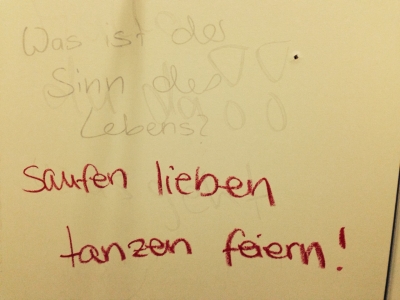 Was ist der
Sinn des
Lebens?
saufen lieben
tanzen feiern!